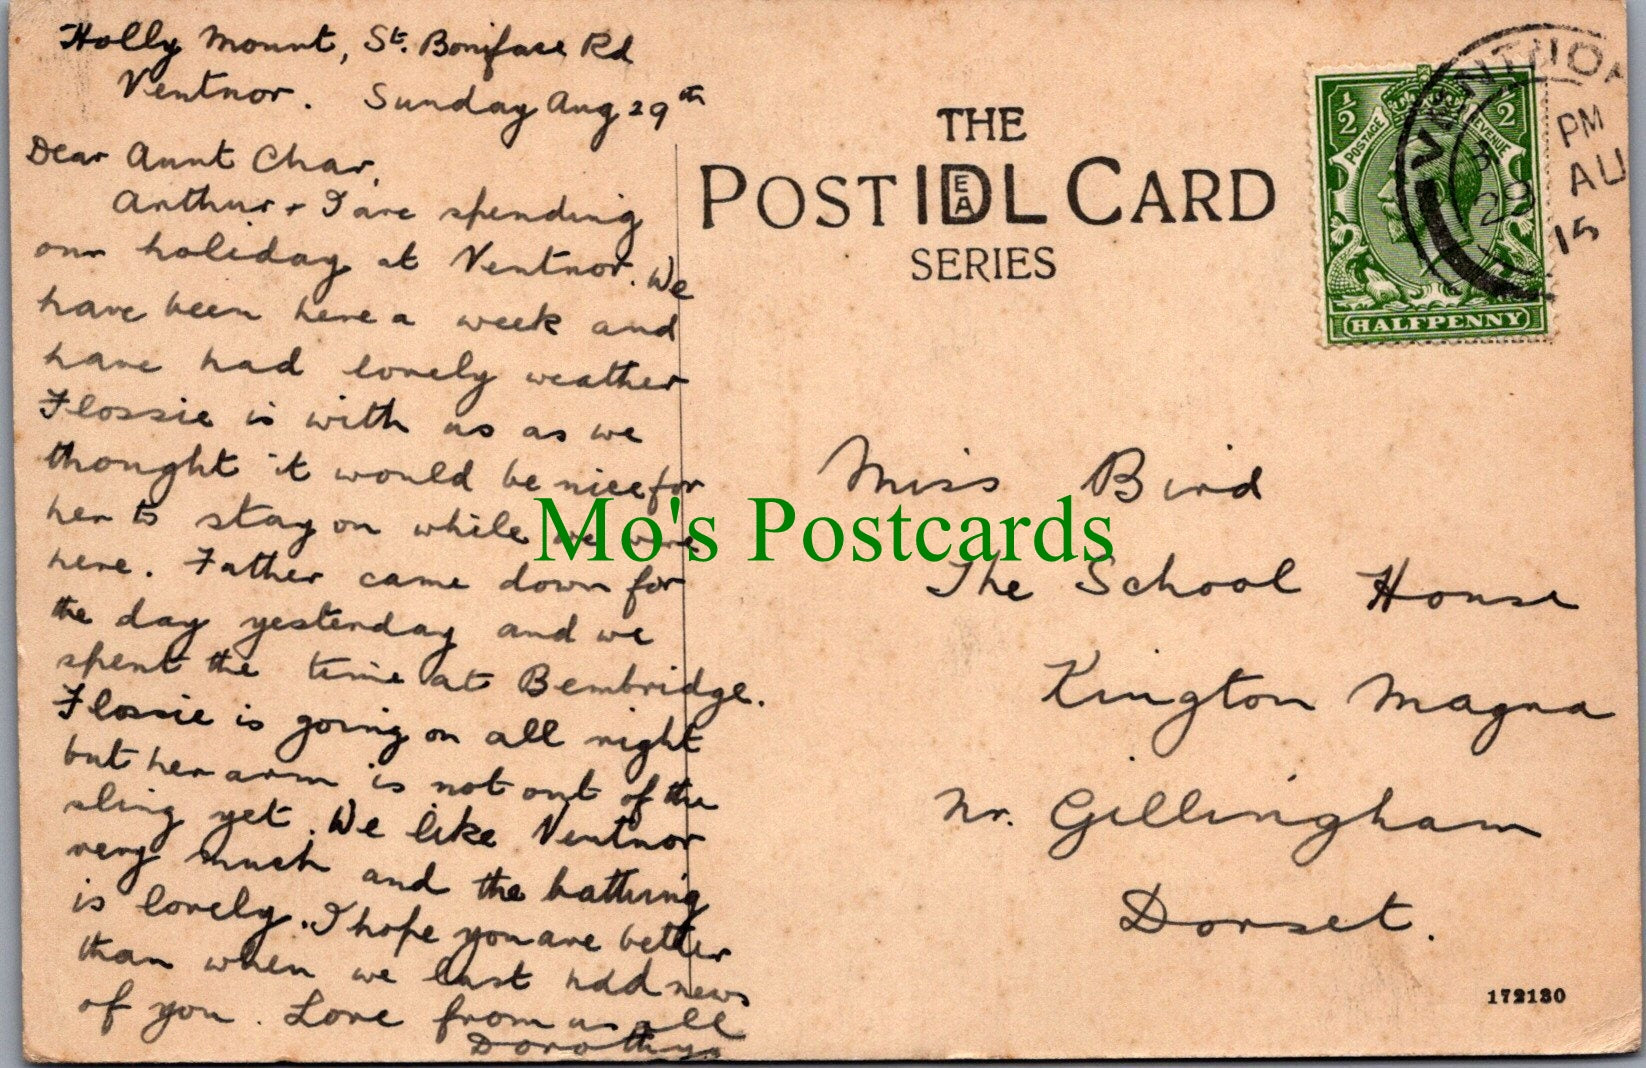 Holly Mount, St. Boniface Rd
Ventnor. Sunday Aug 29th
Dear Aunt Char,
Arthur + I are spending
our holiday at Ventnor. We
have been here a week and
have had lovely weather
Flossie is with us as we
thought it would be nice for
her to stay on while we were
here. Father came down for
the day yesterday and we
spent the time at Bembridge.
Flossie is going on all right
but her arm is not out of the
sling yet. We like Ventnor
very much and the bathing
is lovely. I hope you are better
than when we last had news
of you. Love from us all
Dorothy
THE
POST IDEAL CARD
SERIES
VENTNOR
PM
29 AU
15
1/2 1/2
POSTAGE REVENUE
HALFPENNY
Miss Bird
The School House
Kington Magna
Nr. Gillingham
Dorset.
172130
Mo's Postcards